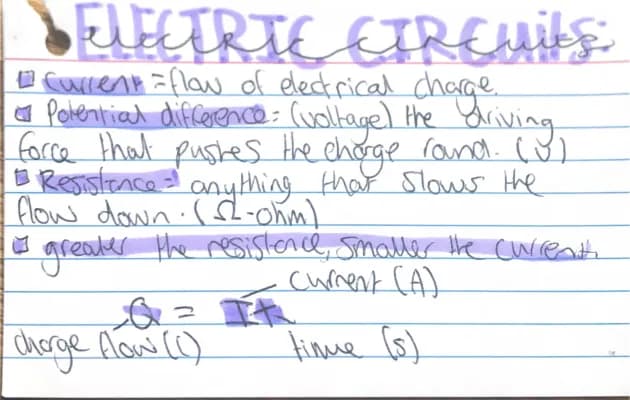 ELECTRIC CIRCUITS:
electric circuits.
Current = flow of electrical charge.
Potential difference = (voltage) the driving
force that pushes the charge round. (V)
Resistance = anything that slows the
flow down. (Ω-ohm)
greater the resistance, smaller the current.
current (A)
Q = It
charge flow (C) time (s)